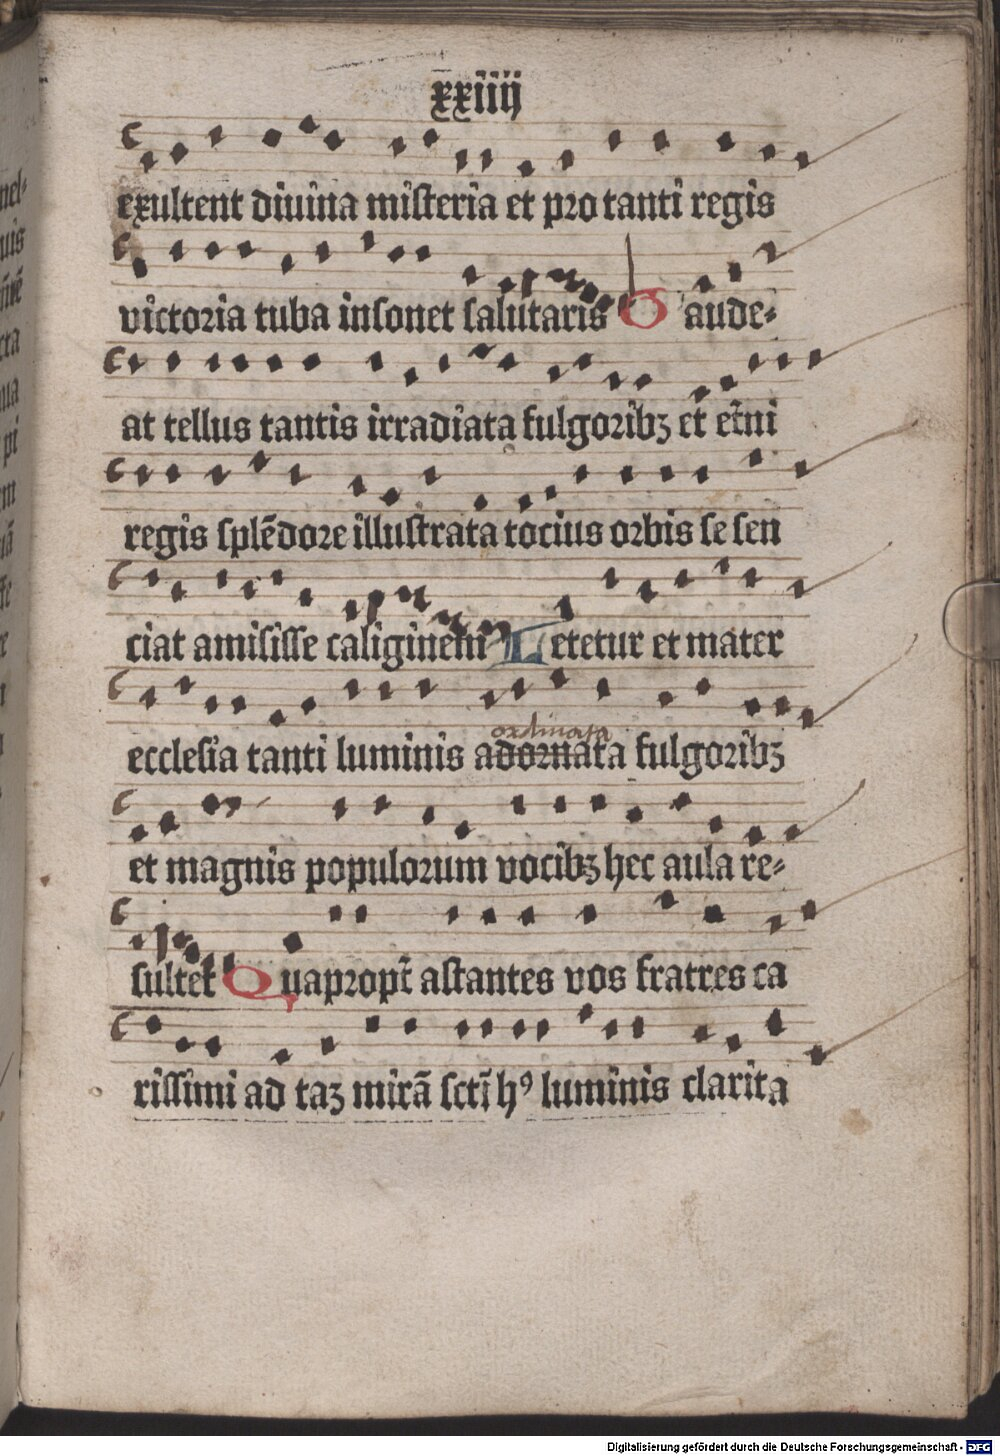 xxiiij
exultent diuina misteria et pro tanti regis
victoria tuba insonet salutaris Gaude-
at tellus tantis irradiata fulgoribꝫ et et̄ni
regis splēdore illustrata tocius orbis se sen
ciat amisisse caliginem Letetur et mater
ordinata
ecclesia tanti luminis adornata fulgoribꝫ
et magnis populorum vocibꝫ hec aula re-
sultet Quapropt̄ astantes vos fratres ca
rissimi ad taꝫ mirā sctī hꝰ luminis clarita
Digitalisierung gefördert durch die Deutsche Forschungsgemeinschaft - DFG